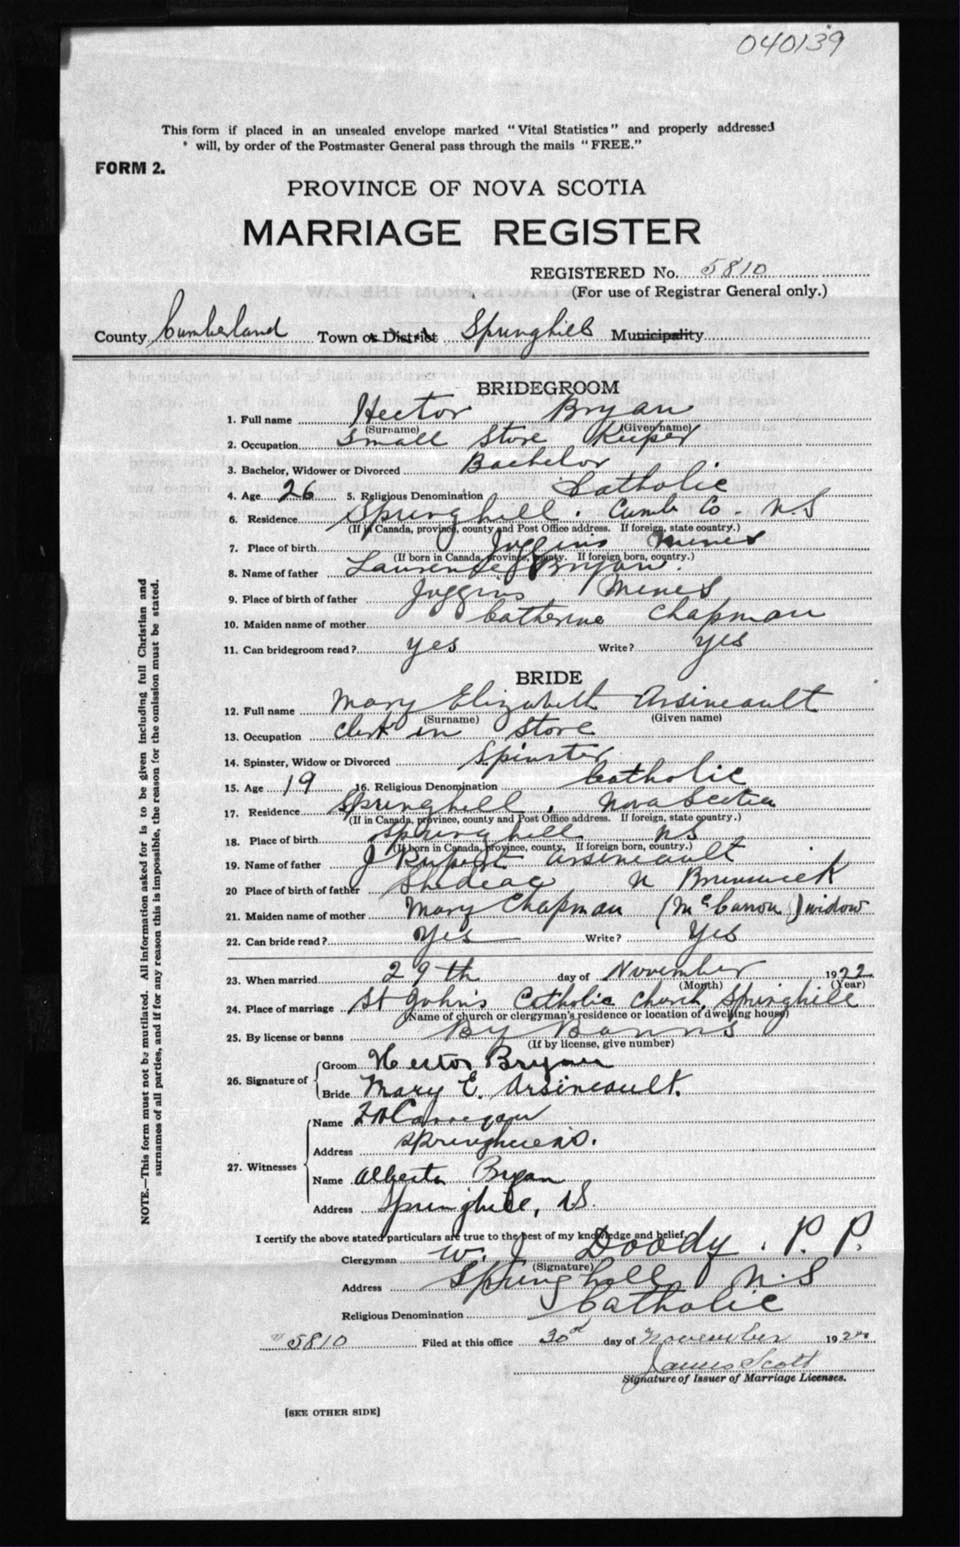 040139
This form if placed in an unsealed envelope marked "Vital Statistics" and properly addressed
will, by order of the Postmaster General pass through the mails "FREE."
FORM 2.
PROVINCE OF NOVA SCOTIA
MARRIAGE REGISTER
REGISTERED No. 5810
(For use of Registrar General only.)
County Cumberland Town or District Springhill Municipality
BRIDEGROOM
1. Full name Hector Bryan
(Surname) (Given name)
2. Occupation Small Store Keeper
3. Bachelor, Widower or Divorced Bachelor
4. Age 26 5. Religious Denomination Catholic
6. Residence Springhill . Cumb Co. N.S
(If in Canada, province, county and Post Office address. If foreign, state country.)
7. Place of birth Joggins Mines
(If born in Canada, province, county. If foreign born, country.)
8. Name of father Laurence J Bryan.
9. Place of birth of father Joggins Mines
10. Maiden name of mother Catherine Chapman
11. Can bridegroom read? yes Write? yes
BRIDE
12. Full name Mary Elizabeth Arsineault
(Surname) (Given name)
13. Occupation Clerk in Store
14. Spinster, Widow or Divorced Spinster
15. Age 19 16. Religious Denomination Catholic
17. Residence Springhill , Nova Scotia
(If in Canada, province, county and Post Office address. If foreign, state country.)
18. Place of birth Springhill NS
(If born in Canada, province, county, If foreign born, country.)
19. Name of father J Rupert Arsineault
20 Place of birth of father Shediac N Brunswick
21. Maiden name of mother Mary Chapman (McCarron) widow
22. Can bride read? Yes Write? Yes
23. When married 29th day of November 1922
(Month) (Year)
24. Place of marriage St John's Catholic Church, Springhill
(Name of church or clergyman's residence or location of dwelling house)
25. By license or banns By Banns
(If by license, give number)
26. Signature of Groom Hector Bryan
Bride Mary E. Arsineault.
27. Witnesses
Name
Address
Name Alberta Bryan
Address Springhill, N.S.
I certify the above stated particulars are true to the best of my knowledge and belief,
Clergyman W. J Doody . P. P.
(Signature)
Address Springhill N.S
Religious Denomination Catholic
5810 Filed at this office 30th day of November 1922
James Scott
Signature of Issuer of Marriage Licenses.
[SEE OTHER SIDE]
NOTE.—This form must not be mutilated. All information asked for is to be given including full Christian and
surnames of all parties, and if for any reason this is impossible, the reason for the omission must be stated.